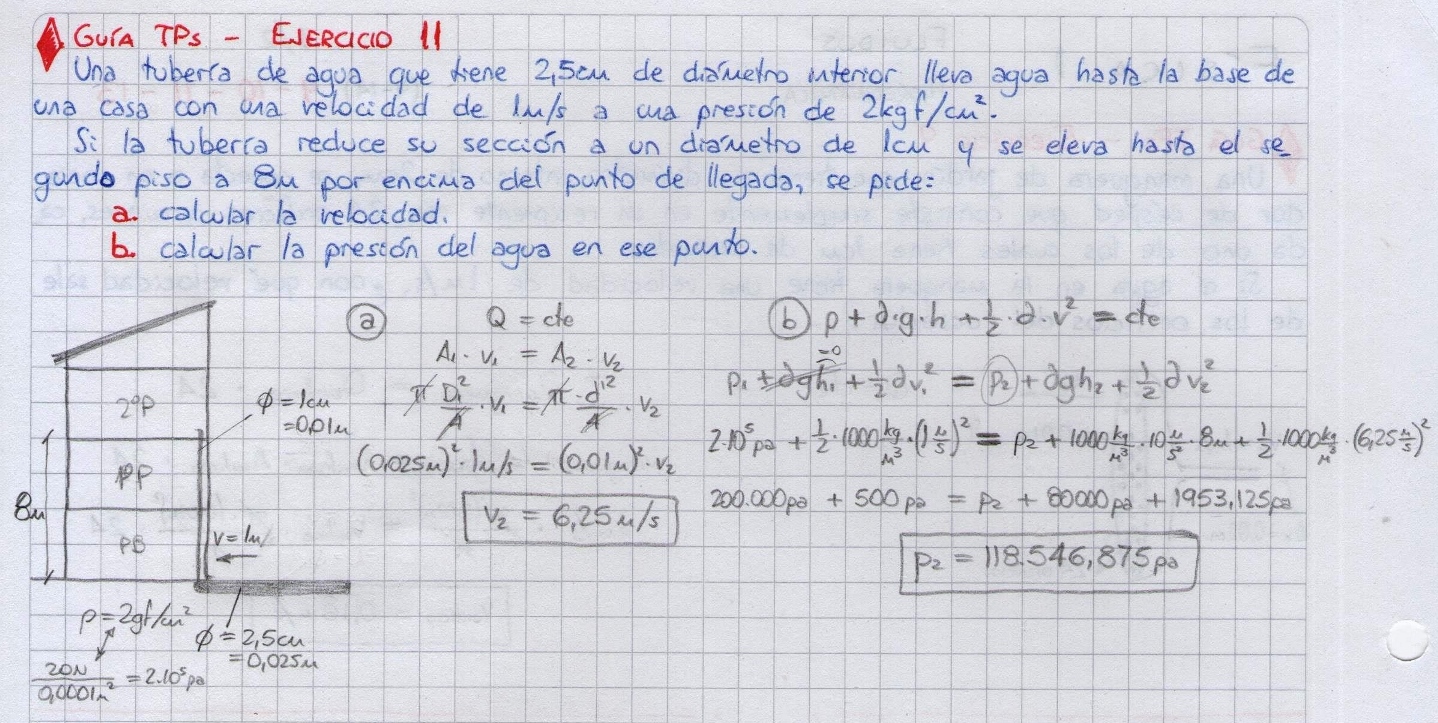 GUÍA TPs - EJERCICIO 11
Una tubería de agua que tiene 2,5cm de diámetro interior lleva agua hasta la base de
una casa con una velocidad de 1m/s a una presión de 2kgf/cm².
Si la tubería reduce su sección a un diámetro de 1cm y se eleva hasta el se_
gundo piso a 8m por encima del punto de llegada, se pide:
a. calcular la velocidad.
b. calcular la presión del agua en ese punto.
2ºP
PP
PB
8m
ϕ = 1cm
= 0,01m
V = 1m/
p = 2gf/cm²
20N / 0,0001m² = 2.10⁵pa
ϕ = 2,5cm
= 0,025m
a
Q = cte
A₁ · v₁ = A₂ · v₂
π D₁²/4 · v₁ = π · d²/4 · v₂
(0,025m)² · 1m/s = (0,01m)² · v₂
V₂ = 6,25m/s
b p + ∂·g·h + 1/2 · ∂ · v² = cte
=0
p₁ + ∂gh₁ + 1/2 ∂v₁² = p₂ + ∂gh₂ + 1/2 ∂v₂²
2·10⁵pa + 1/2 · 1000 kg/m³ · (1 m/s)² = p₂ + 1000 kg/m³ · 10 m/s² · 8m + 1/2 · 1000 kg/m³ · (6,25 m/s)²
200.000pa + 500pa = p₂ + 80000pa + 1953,125pa
p₂ = 118.546,875pa